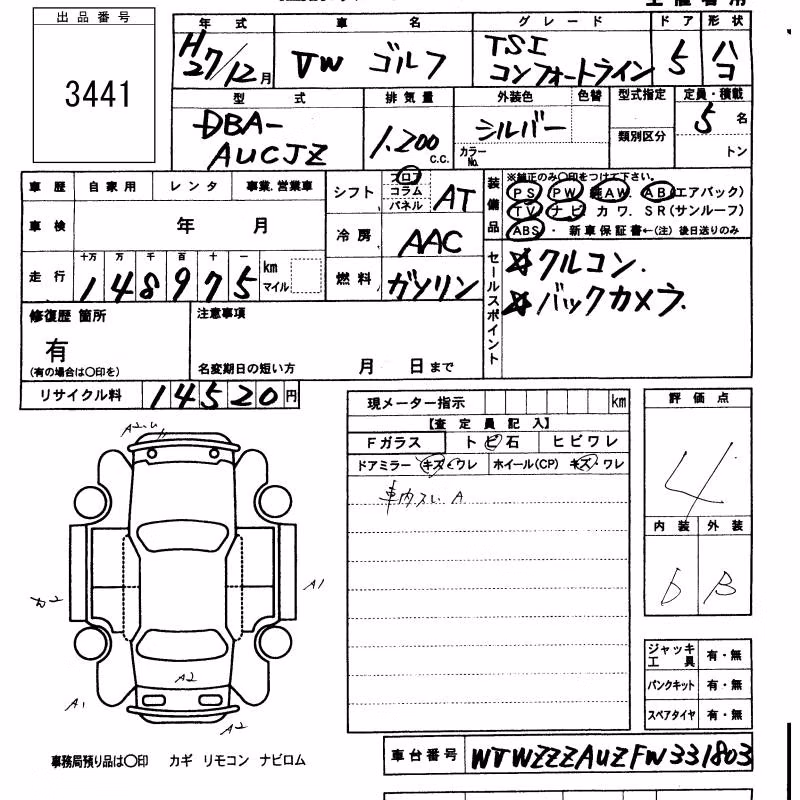 出品番号
3441
年式 車名 グレード ドア 形状
H27/12月 VW ゴルフ TSI コンフォートライン 5 ハコ
型式 排気量 外装色 色替 型式指定 定員・積載
DBA-AUCJZ 1,200 C.C. シルバー カラーNo. 類別区分 5名 トン
車歴 自家用 レンタ 事業.営業車
車検 年 月
走行 十万 万 千 百 十 一
148975 km マイル
シフト フロア コラム パネル AT
冷房 AAC
燃料 ガソリン
装備品 ※純正のみ○印をつけて下さい。
PS PW 純AW. AB(エアバック)
TV ナビ カワ. SR(サンルーフ)
ABS・新車保証書←(注) 後日送りのみ
セールスポイント
☆クルコン.
☆バックカメラ.
修復歴 箇所
有
(有の場合は○印を)
注意事項
名変期日の短い方 月 日まで
リサイクル料 14520円
現メーター指示 km
【査定員記入】
Fガラス トビ石 ヒビワレ
ドアミラー キズ・ワレ ホイール(CP) キズ・ワレ
車内スレ A
評価点
4
内装 外装
b B
A1
A2
A1
A2
ジャッキ工具 有・無
パンクキット 有・無
スペアタイヤ 有・無
事務局預り品は○印 カギ リモコン ナビロム
車台番号 WVWZZZAUZFW331803